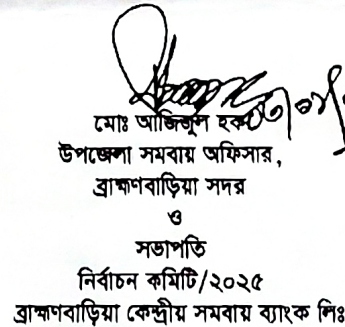 মোঃ আজিজুল হক
উপজেলা সমবায় অফিসার,
ব্রাহ্মণবাড়িয়া সদর
ও
সভাপতি
নির্বাচন কমিটি/২০২৫
ব্রাহ্মণবাড়িয়া কেন্দ্রীয় সমবায় ব্যাংক লিঃ